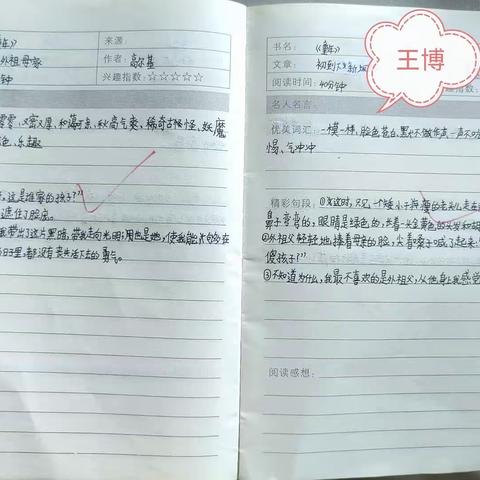 年》
来源：
外祖母家
作者：高尔基
钟
兴趣指数：☆☆☆☆☆
色、乐趣
，这是谁家的孩子？”
遮住了脸庞。
我带出了这片黑暗，带我走向光明；用也是她，使我能
日子里，都没有丧失活下去的勇气。
王博
书名：《童年》
文章：初到
阅读时间：40分钟
指数：
名人名言：
优美词汇：一模一样、脸色苍白、一声不吭
愠、气冲冲
精彩句段：①这时，只见，一个矮小干瘦的老头儿走在
鼻子弯弯的，眼睛是绿色的，长着一头金黄色的头发和
②外祖父轻轻地捧着母亲的脸，尖着嗓子喊了起来：
傻孩子？”
③不知道为什么，我最不喜欢的是外祖父，从他身上我感觉
阅读感想：